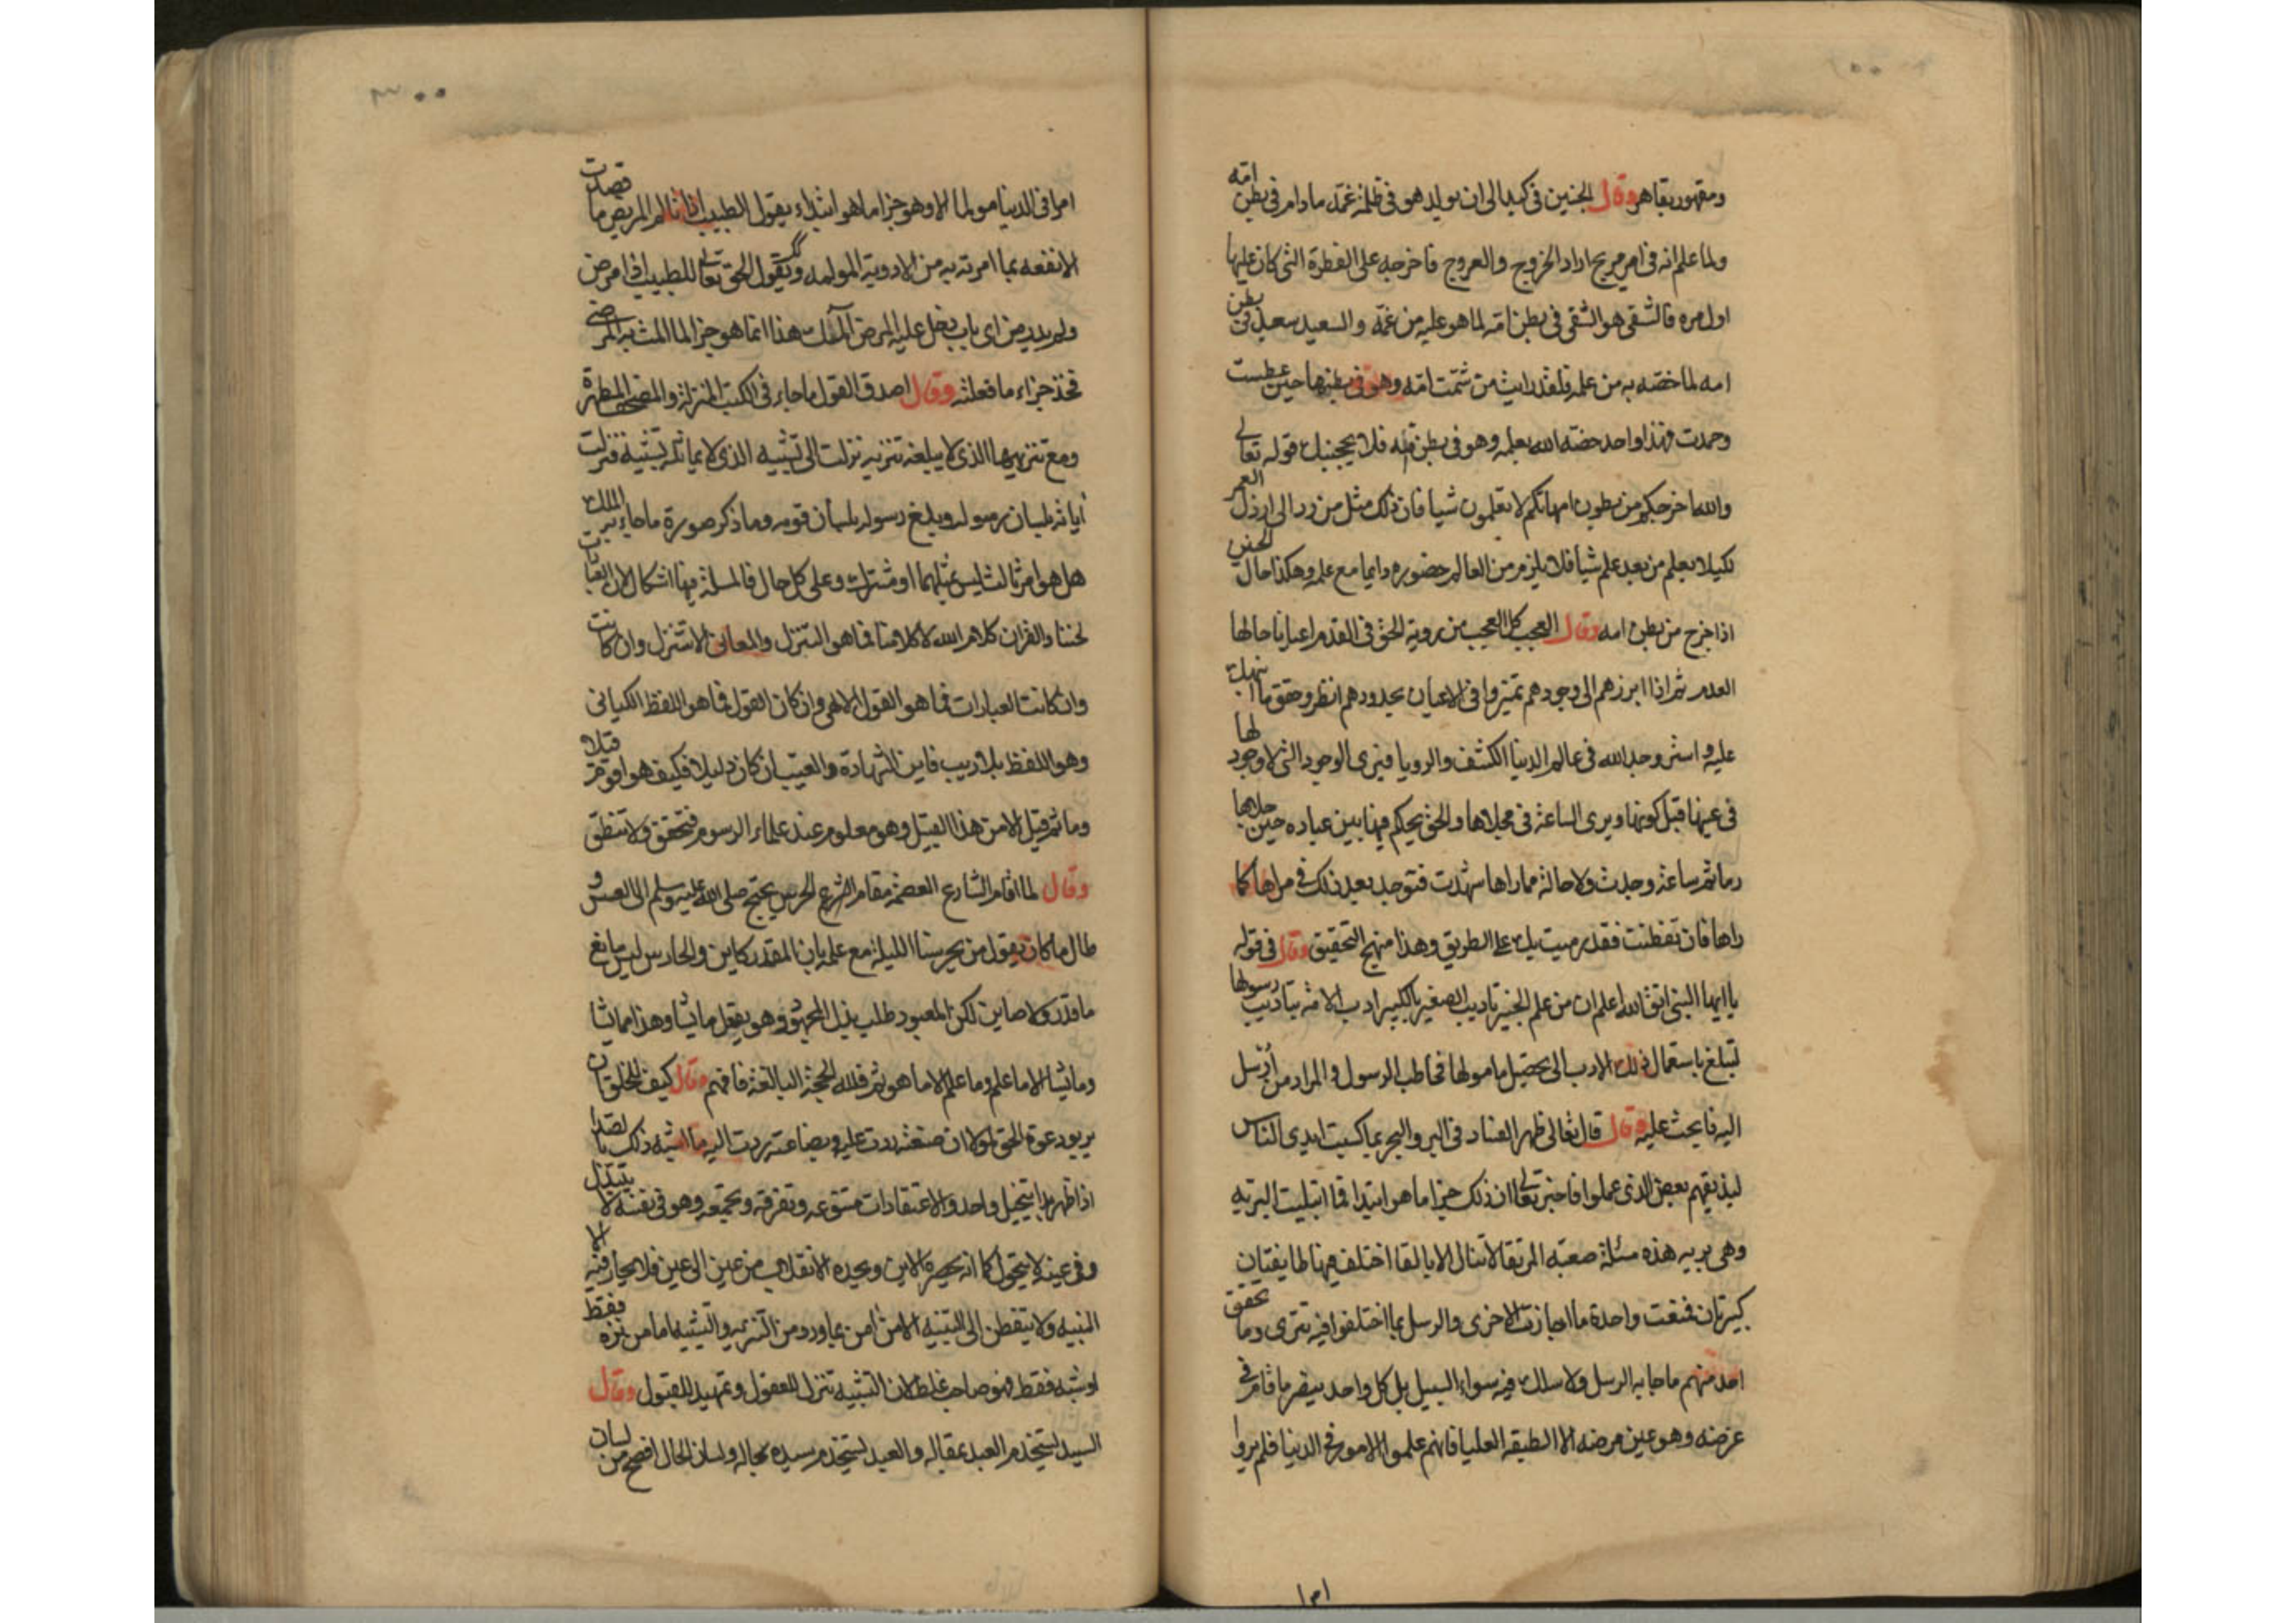 ومقهور بقاهر وقال الجنين فى كبد الى ان يولد هو فى ظلمة غمه ما دام فى بطن امه
ولما علم انه فى امر مريج اراد الخروج والعروج فاخرجه على الفطرة التى كان عليها
اول مره فالشقى هو الشقى فى بطن امه لما هو عليه من غمه والسعيد سعيد فى بطن
امه لما خصه به من علمه فلقد رايت من شمتت امه وهو فى بطنها حين عطست
وحمدت فهذا واحد خصه الله بعلمه وهو فى بطن امه فلا يحجبنك قوله تعالى
والله اخرجكم من بطون امهاتكم لا تعلمون شيا فان ذلك مثل من رد الى ارذل العمر
لكيلا يعلم من بعد علم شيا فلا يلزم من العالم حضوره دايما مع علمه وهكذا حال الجنين
اذا خرج من بطن امه وقال العجب كل العجب من روية الحق فى القدم اعيانا حالها
العدم ثم اذا ابرزهم الى وجودهم تميزوا فى الاعيان بحدودهم انظر وحقق ما نبهتك
عليه واستر وجد الله فى عالم الدنيا الكشف والرويا فيرى الوجود التى لا وجود لها
فى عينها قبل كونها ويرى الساعة فى مجلاها والحق يحكم فيها بين عباده حين جلاها
وما ثم ساعة وجدت ولا حالة مما راها شهدت فتوجد بعد ذلك فى مراها كما
راها فان تفطنت فقد رميت بك على الطريق وهذا منهج التحقيق وقال فى قوله
يا ايها النبى اتق الله اعلم ان من علم الخبير تاديب الصغير بالكبير ادب الامة بتاديب رسولها
لتبلغ باستعمال ذلك الادب الى تحصيل مامولها فخاطب الرسول والمراد من ارسل
اليه فابحث عليه وقال قال تعالى ظهر الفساد فى البر والبحر بما كسبت ايدى الناس
ليذيقهم بعض الذى عملوا فاخبر تعالى ان ذلك جزا ما هو ابتدا فما ابتليت البريه
وهى بريه هذه مسئلة صعبة المرتقا لا تنال الا بالقا اختلف فيها طايفتان
كبيرتان فمنعت واحدة ما اجازته الاخرى والرسل بما اختلفوا فيه تترى وما تحقق
احد منهم ما جا به الرسل ولا سلك فيه سواء السبيل بل كل واحد ينصر ما قام فى
غرضه وهو عين مرضه الا الطبقه العليا فانهم علموا الامور فى الدنيا فلم يروا
امرا فى الدنيا مولما الا وهو جزا ما هو ابتداء يقول الطبيب اذا تالم المريض ما قصدت
الا نفعه بما امرته به من الادوية المولمه ويقول الحق تعالى للطبيب اذا مرض
ولم يدر من اى باب دخل عليه المرض الملك هذا انما هو جزا لما المت به المرضى
فخذ جزاء ما فعلته وقال اصدق القول ما جاء فى الكتب المنزلة والمصحف المطهرة
ومع تنزيهها الذى لا يبلغه تنزيه نزلت الى تشبيه الذى لا يماثله تشبيه فنزلت
اياته بلسان رسوله وبلغ رسوله بلسان قومه وما ذكر صورة ما جاء به الملك
هل هو امر ثالث ليس مثلهما او مشترك وعلى كل حال فالمسلة فيها اشكال لان العبارات
لحننا والقران كلام الله لا كلامنا فما هو التنزل والمعانى لا تتنزل وان كانت
وان كانت العبارات فما هو القول الالهى وان كان القول فما هو اللفظ الكيانى
وهو اللفظ بلا ريب فاين الشهادة والغيب ان كان دليلا فكيف هو اقوم قيلا
وما ثم قيل الا من هذا القبيل وهو معلوم عند علماء الرسوم فتحقق ولا تنطق
وقال لما اقام الشارع العصمة مقام الشرع الحرس يحتج صلى الله عليه وسلم الى العسس و
طال ما كان يقول من يحرسنا الليلة مع علمه بان المقدر كاين والحارس ليس بمانع
ما قدر ولا صاين لكن المعبود طلب بذل المجهود وهو يفعل ما يشا وهذا مما يشا
وما يشا الا ما علم وما علم الا ما هو ثم فلله الحجة البالغة فافهم وقال كيف للمخلوق ان
يريد دعوة الحق لولا ان صنعته ردت عليه وبضاعته ردت اليه ما اشبه ذلك بالصدا
اذا ظهر بدا يتخيل واحد والاعتقادات متنوعه وتفرقه وتجمعه وهو فى نفسه لا يتبدل
وفى عينه لا يتحول كما انه يحصره الاين ويحده الانقلاب من عين الى عين فلا يحار فيه الا
النبيه ولا يتفطن الى التنبيه الا من امن بما ورد من التنزيه والتشبيه اما من نزه فقط
او شبه فقط فهو صاحب غلط لان التشبيه تنزل للعقول وتمهيد للقبول وقال
السيد يستخدم العبد بمقاله والعبد يستخدم سيده بحاله ولسان الحال افصح من لسان